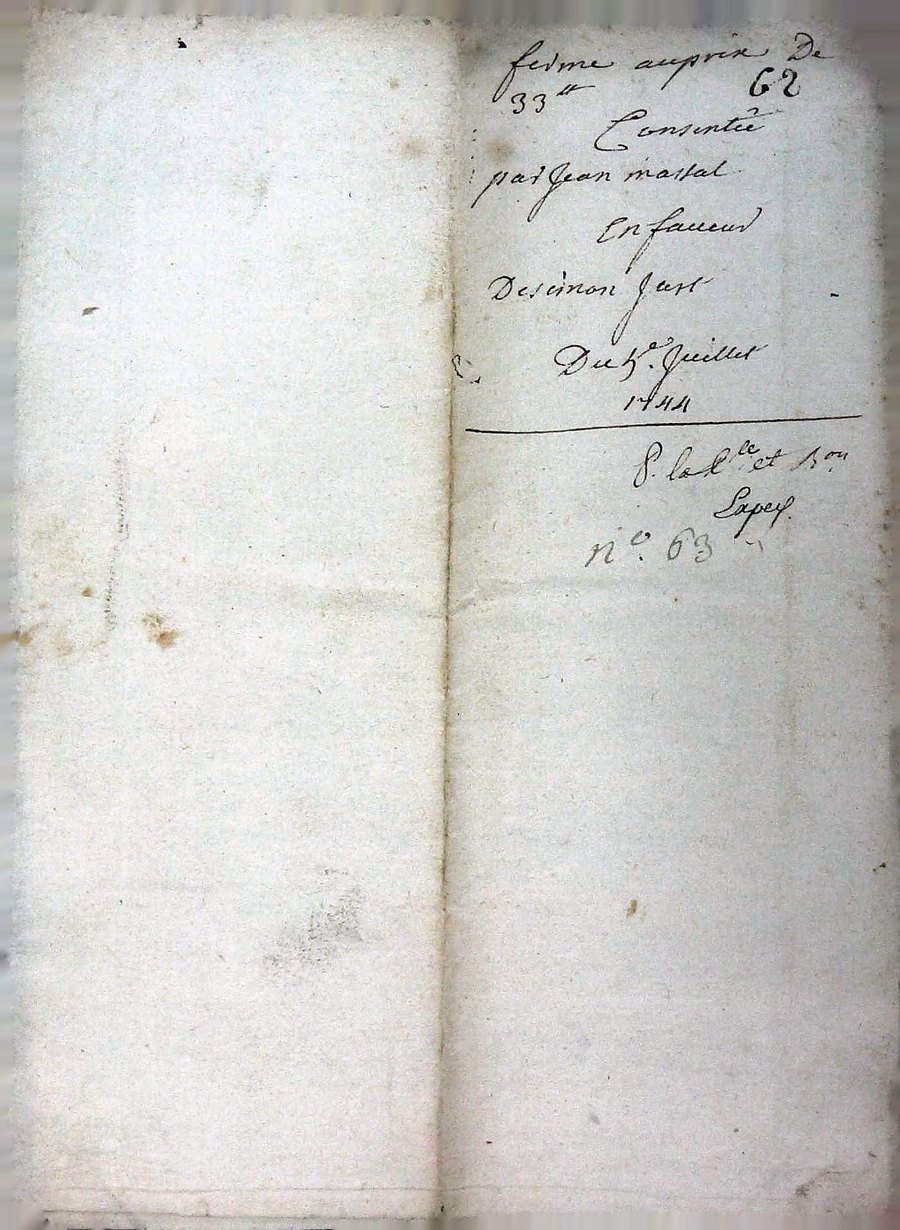 ferme auprix De
33tt
62
Consentie
par Jean massal
En faveur
De simon Just
Du 5e. Juillet
1744
P. la et
Lapey
n° 63